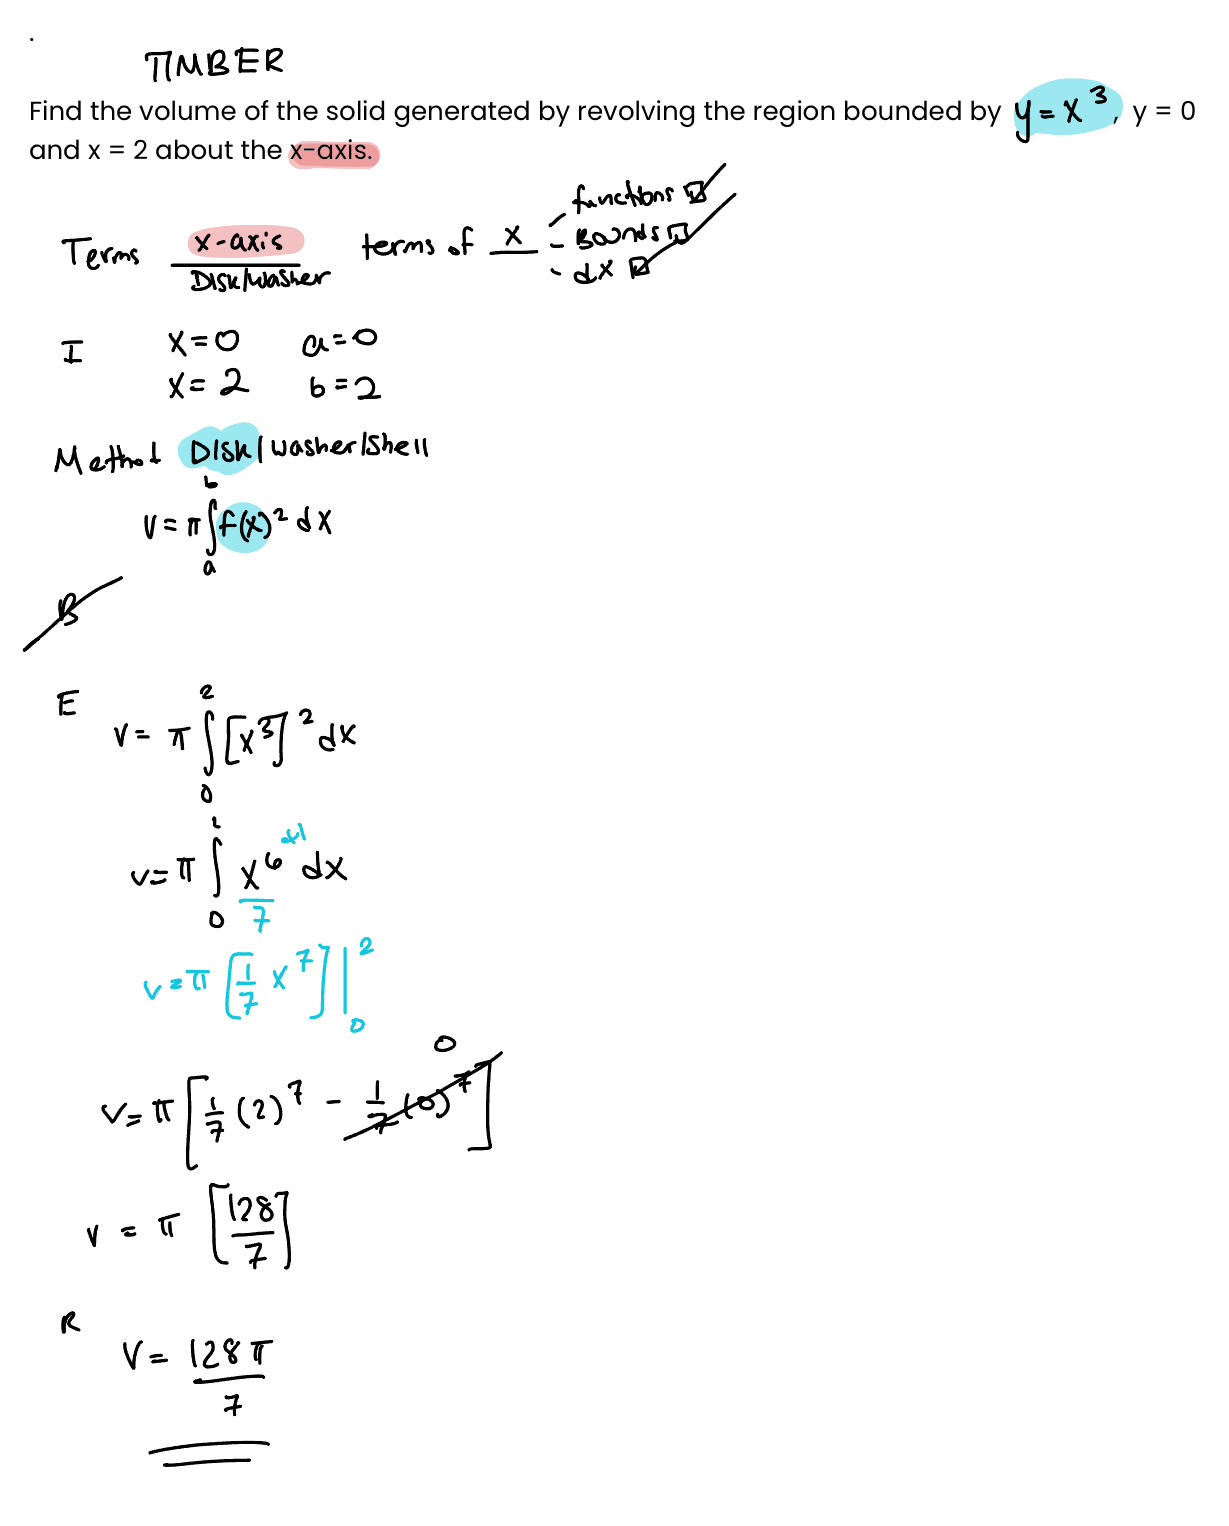 TIMBER
Find the volume of the solid generated by revolving the region bounded by y = x³, y = 0
and x = 2 about the x-axis.
Terms x-axis / Disk/Washer terms of x - functions ☑
- Bounds ☑
- dx ☑
I x=0 a=0
x=2 b=2
Method Disk/washer/shell
V = π ∫_a^b f(x)² dx
B
E V = π ∫_0^2 [x³]² dx
V = π ∫_0^2 x^6+1 / 7 dx
V = π [1/7 x⁷] |_0^2
V = π [1/7 (2)⁷ - 1/7 (0)⁷] 0
V = π [128/7]
R
V = 128π/7